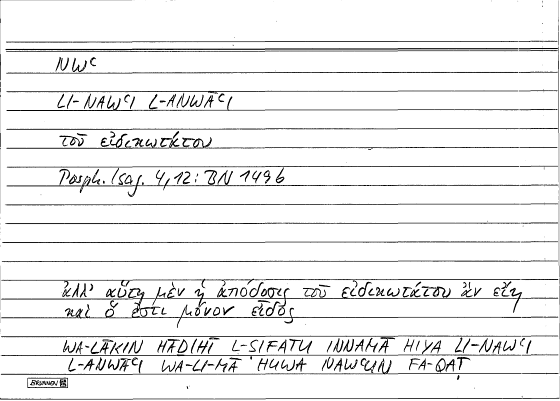 NWᶜ
LI-NAWᶜI L-ANWĀᶜI
τοῦ εἰδικωτάτου
Porph. Isag. 4,12: BN 149b
ἀλλ' αὕτη μὲν ἡ ἀπόδοσις τοῦ εἰδικωτάτου ἂν εἴη
καὶ ὅ ἐστι μόνον εἶδος
WA-LĀKIN HĀḎIHĪ L-SIFATU INNAMĀ HIYA LI-NAWᶜI
L-ANWĀᶜI WA-LI-MĀ HUWA NAWᶜUN FA-QAṬ
BRUNNEN